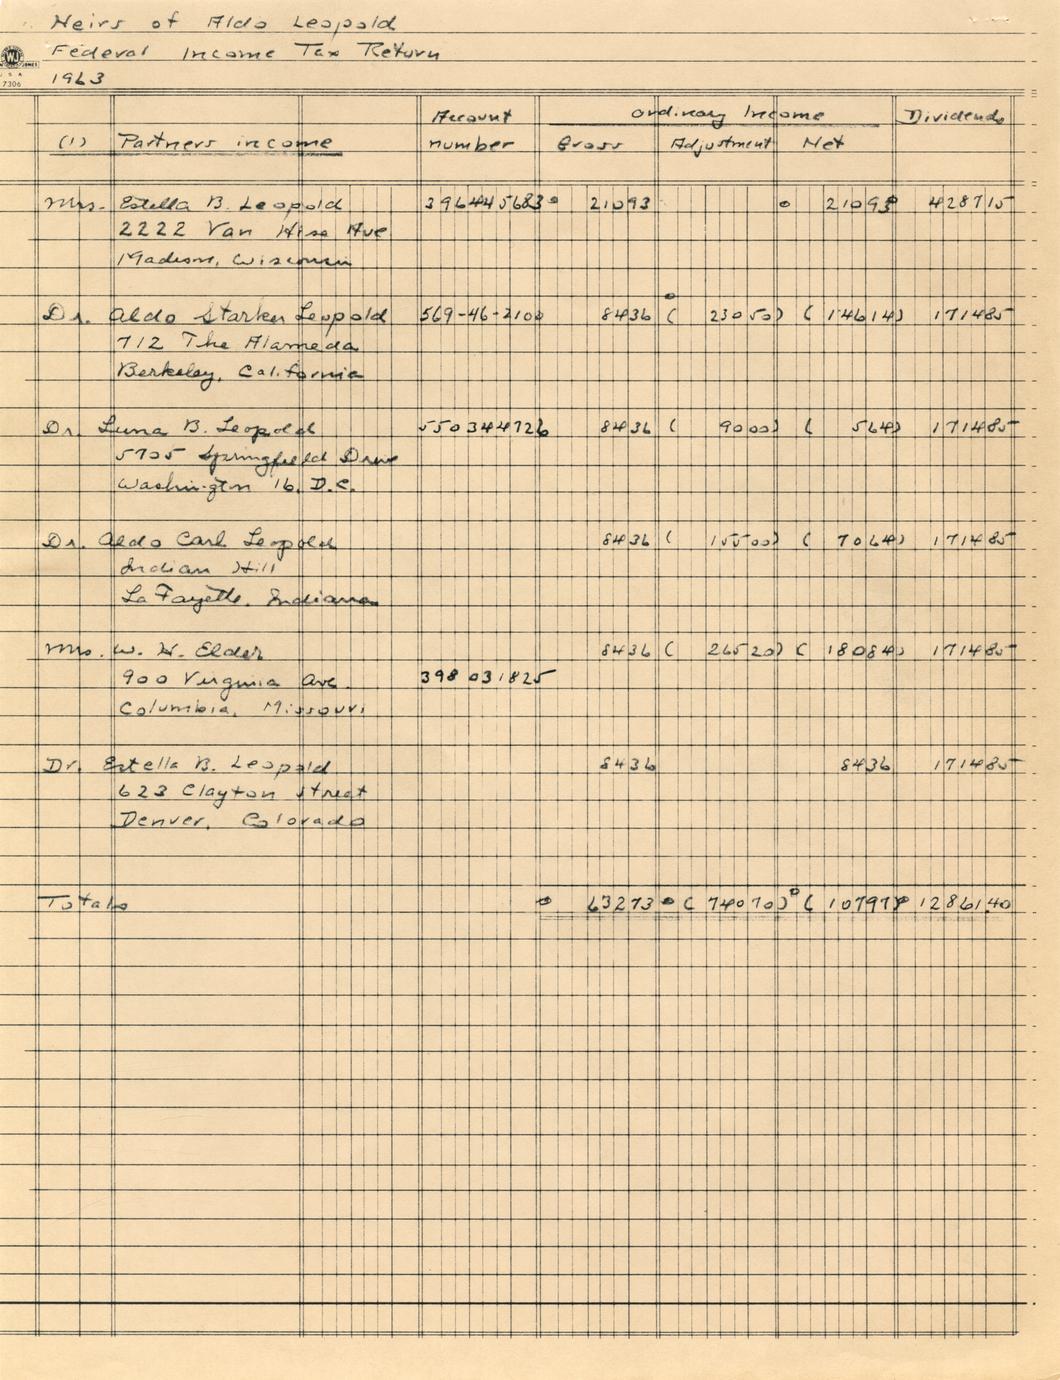 Heirs of Aldo Leopold
Federal Income Tax Return
1963
WJ
USA
7306
Account Ordinary Income Dividends
(1) Partners income number Gross Adjustment Net
Mrs. Estella B. Leopold 396445683 21093 21093 428715
2222 Van Hise Ave
Madison, Wisconsin
Dr. Aldo Starker Leopold 569-46-2100 8436 ( 23050) ( 14614) 171485
712 The Alameda
Berkeley, California
Dr. Luna B. Leopold 550344726 8436 ( 9000) ( 564) 171485
5705 Springfield Drive
Washington 16, D.C.
Dr. Aldo Carl Leopold 8436 ( 15500) ( 7064) 171485
Indian Hill
La Fayette, Indiana
Mrs. W. H. Elder 8436 ( 26520) ( 18084) 171485
900 Virginia Ave. 398031825
Columbia, Missouri
Dr. Estella B. Leopold 8436 8436 171485
623 Clayton Street
Denver, Colorado
Totals 63273 ( 74070) ( 10797) 12861.40